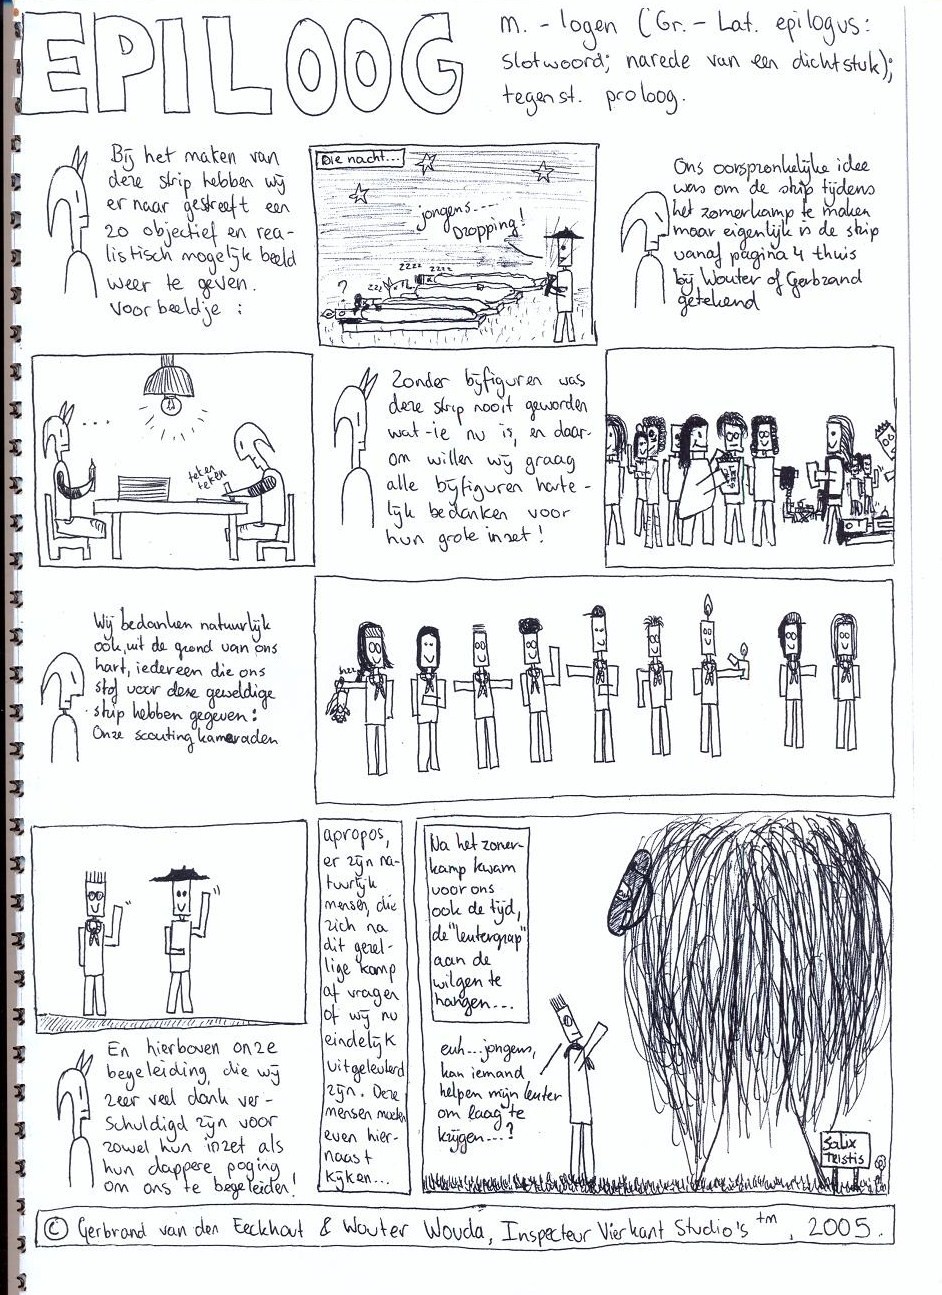 EPILOOG
m. - logen (Gr. - Lat. epilogus:
slotwoord; narede van een dichtstuk);
tegenst. proloog.
Bij het maken van
deze strip hebben wij
er naar gestreeft een
zo objectief en rea-
listisch mogelijk beeld
weer te geven.
Voorbeeldje :
Die nacht...
jongens----
Dropping!
?
zzz
zzzz
zzzz
Ons oorspronkelijke idee
was om de strip tijdens
het zomerkamp te maken
maar eigenlijk is de strip
vanaf pagina 4 thuis
bij Wouter of Gerbrand
getekend
...
teken
teken
Zonder bijfiguren was
deze strip nooit geworden
wat-ie nu is, en daar-
om willen wij graag
alle bijfiguren harte-
lijk bedanken voor
hun grote inzet!
Wij bedanken natuurlijk
ook, uit de grond van ons
hart, iedereen die ons
stof voor deze geweldige
strip hebben gegeven:
Onze scouting kameraden
En hierboven onze
begeleiding, die wij
zeer veel dank ver-
schuldigd zijn voor
zowel hun inzet als
hun dappere poging
om ons te begeleiden!
apropos,
er zijn na-
tuurlijk
mensen, die
zich na
dit gezel-
lige kamp
af vragen
of wij nu
eindelijk
uitgeleuterd
zijn. Deze
mensen moeten
even hier-
naast
kijken...
Na het zomer-
kamp kwam
voor ons
ook de tijd,
de "leutergrap"
aan de
wilgen te
hangen...
euh...jongens,
kan iemand
helpen mijn leuter
om laag te
krijgen...?
Salix
Tristis
© Gerbrand van den Eeckhout & Wouter Wouda, Inspecteur Vierkant Studio's ™, 2005.